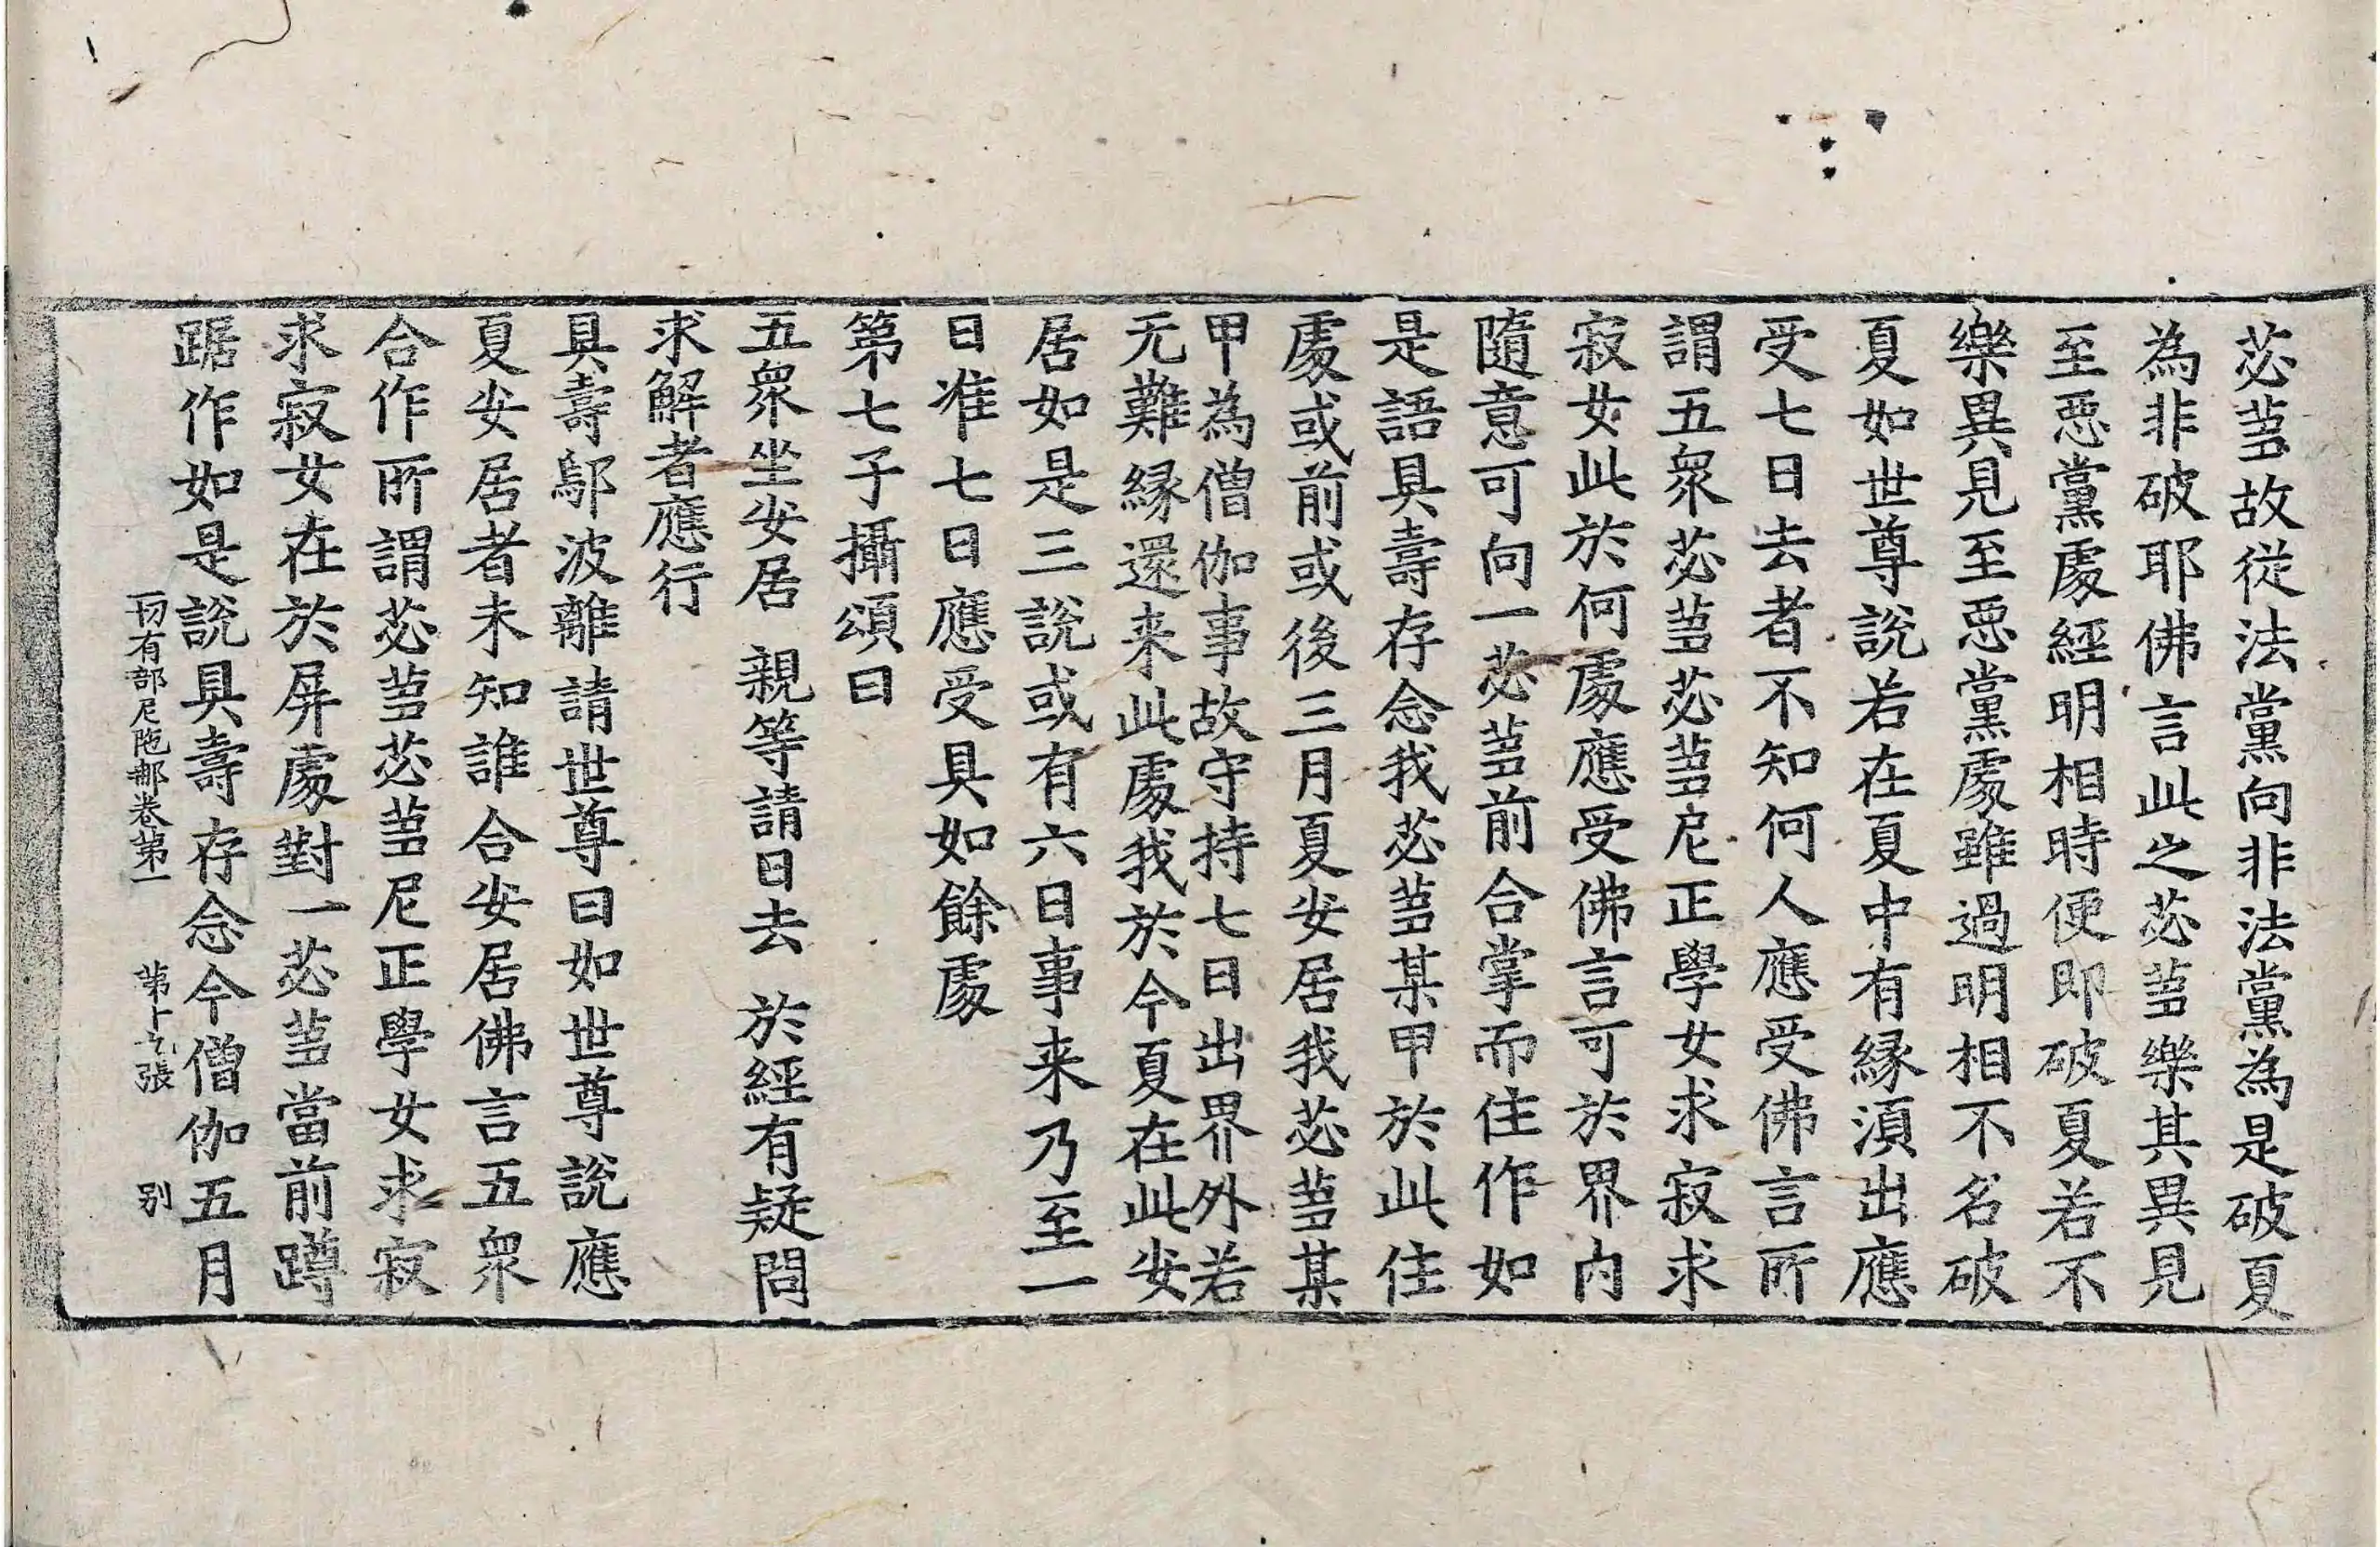 苾蒭故從法黨向非法黨為是破夏
為非破耶佛言此之苾蒭樂其異見
至惡黨處經明相時便即破夏若不
樂異見至惡黨處雖過明相不名破
夏如世尊說若在夏中有緣湏出應
受七日去者不知何人應受佛言所
謂五衆苾蒭苾蒭尼正學女求寂求
寂女此於何處應受佛言可於界內
隨意可向一苾蒭前合掌而住作如
是語具壽存念我苾蒭某甲於此住
處或前或後三月夏安居我苾蒭某
甲為僧伽事故守持七日出界外若
无難緣還来此處我於今夏在此安
居如是三說或有六日事来乃至一
日准七日應受具如餘處
第七子攝頌曰
五衆坐安居　親等請日去　於經有疑問
求解者應行
具壽鄔波離請世尊曰如世尊說應
夏安居者未知誰合安居佛言五衆
合作所謂苾蒭苾蒭尼正學女求寂
求寂女在於屏處對一苾蒭當前蹲
踞作如是說具壽存念今僧伽五月
一切有部尼陁那卷第一　第十九張　別